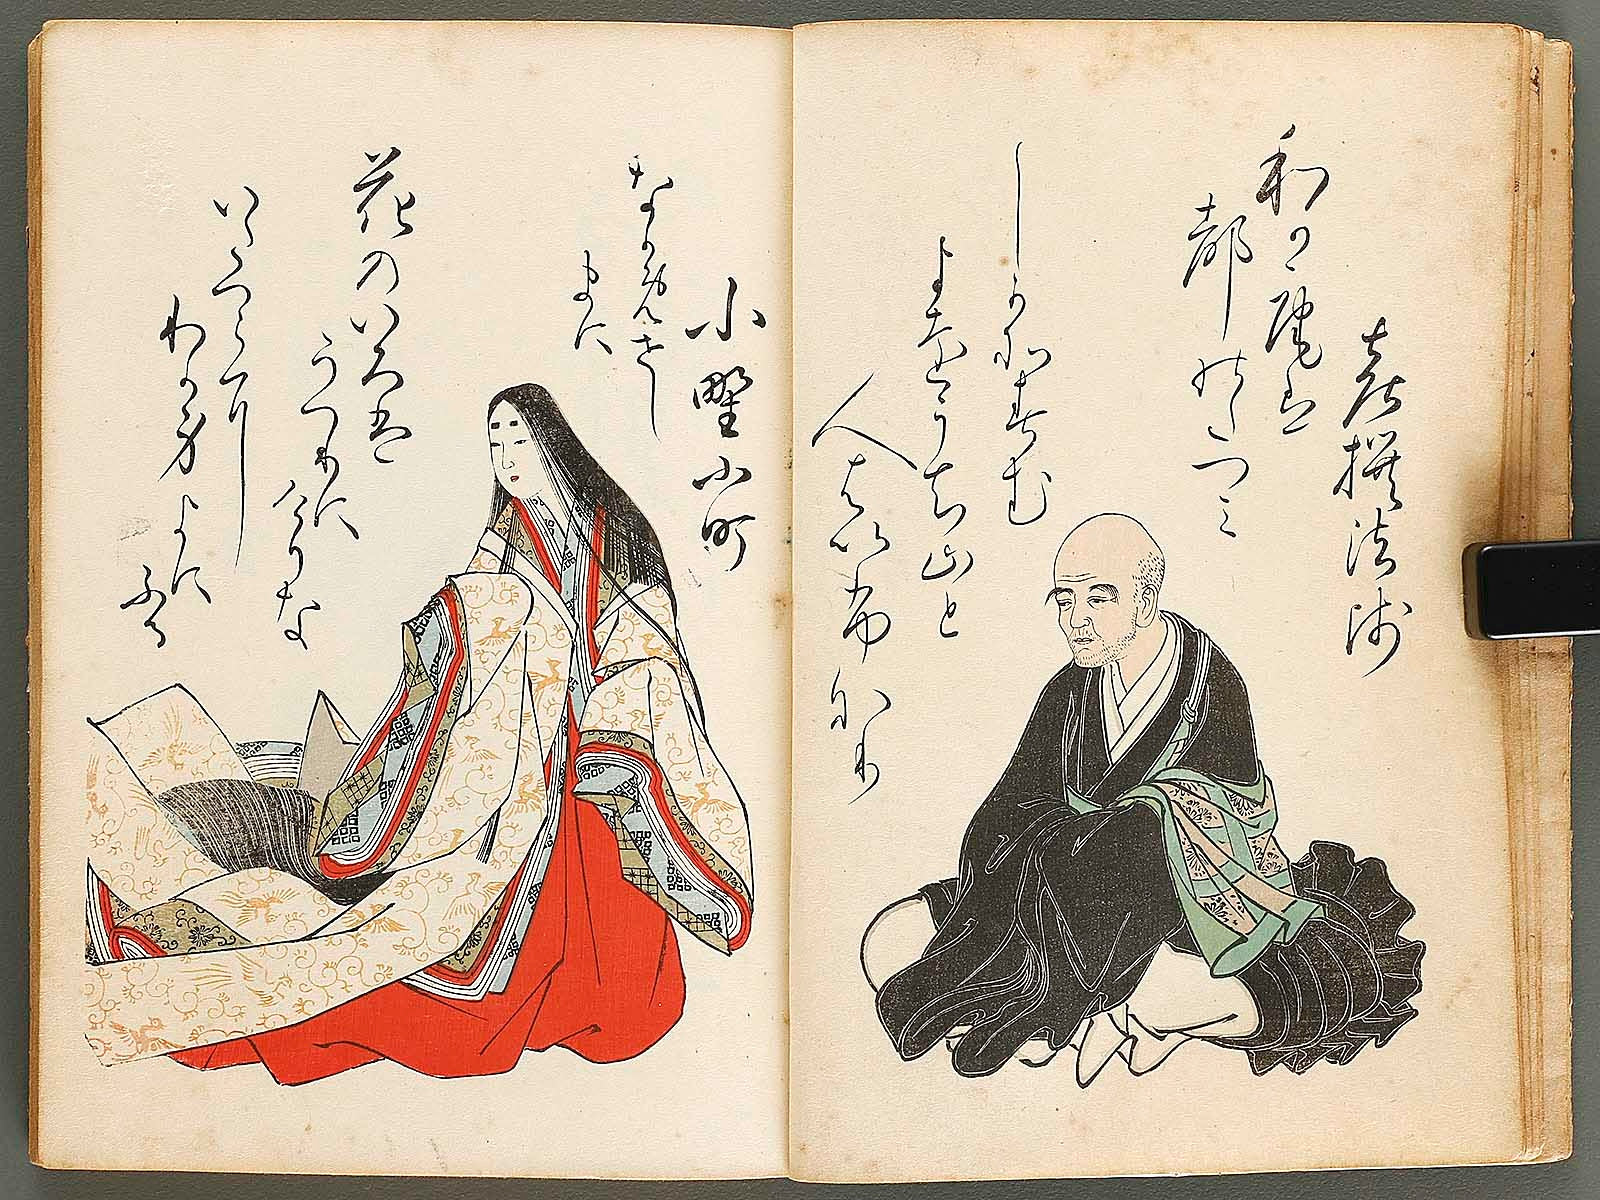 喜撰法師
和可庵は
都のたつミ
しかそすむ
よをうち山と
人はいふなり
小野小町
花のいろは
うつりに
けりな
いたつらに
わか身
よに
ふる
なかめせし
まに